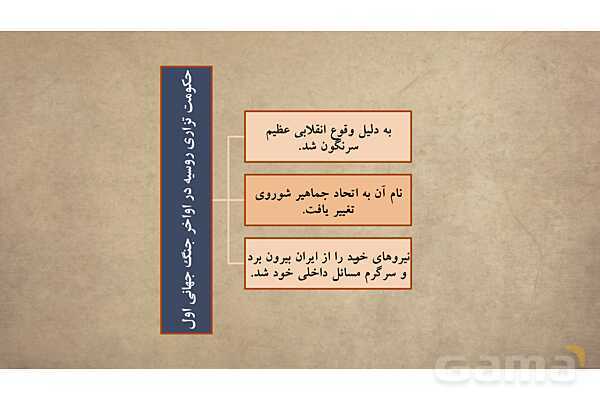 حکومت تزاری روسیه در اواخر جنگ جهانی اول
به دلیل وقوع انقلابی عظیم
سرنگون شد.
نام آن به اتحاد جماهیر شوروی
تغییر یافت.
نیروهای خود را از ایران بیرون برد
و سرگرم مسائل داخلی خود شد.
Gama